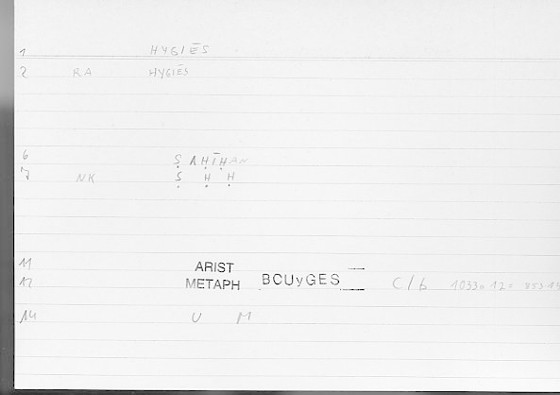 1 HYGIĒS
2 RA HYGIĒS
6 ṢAḤĪḤAN
7 NK Ṣ Ḥ Ḥ
11 ARIST
12 METAPH BOUyGES C/b 1033a 12
14 U M